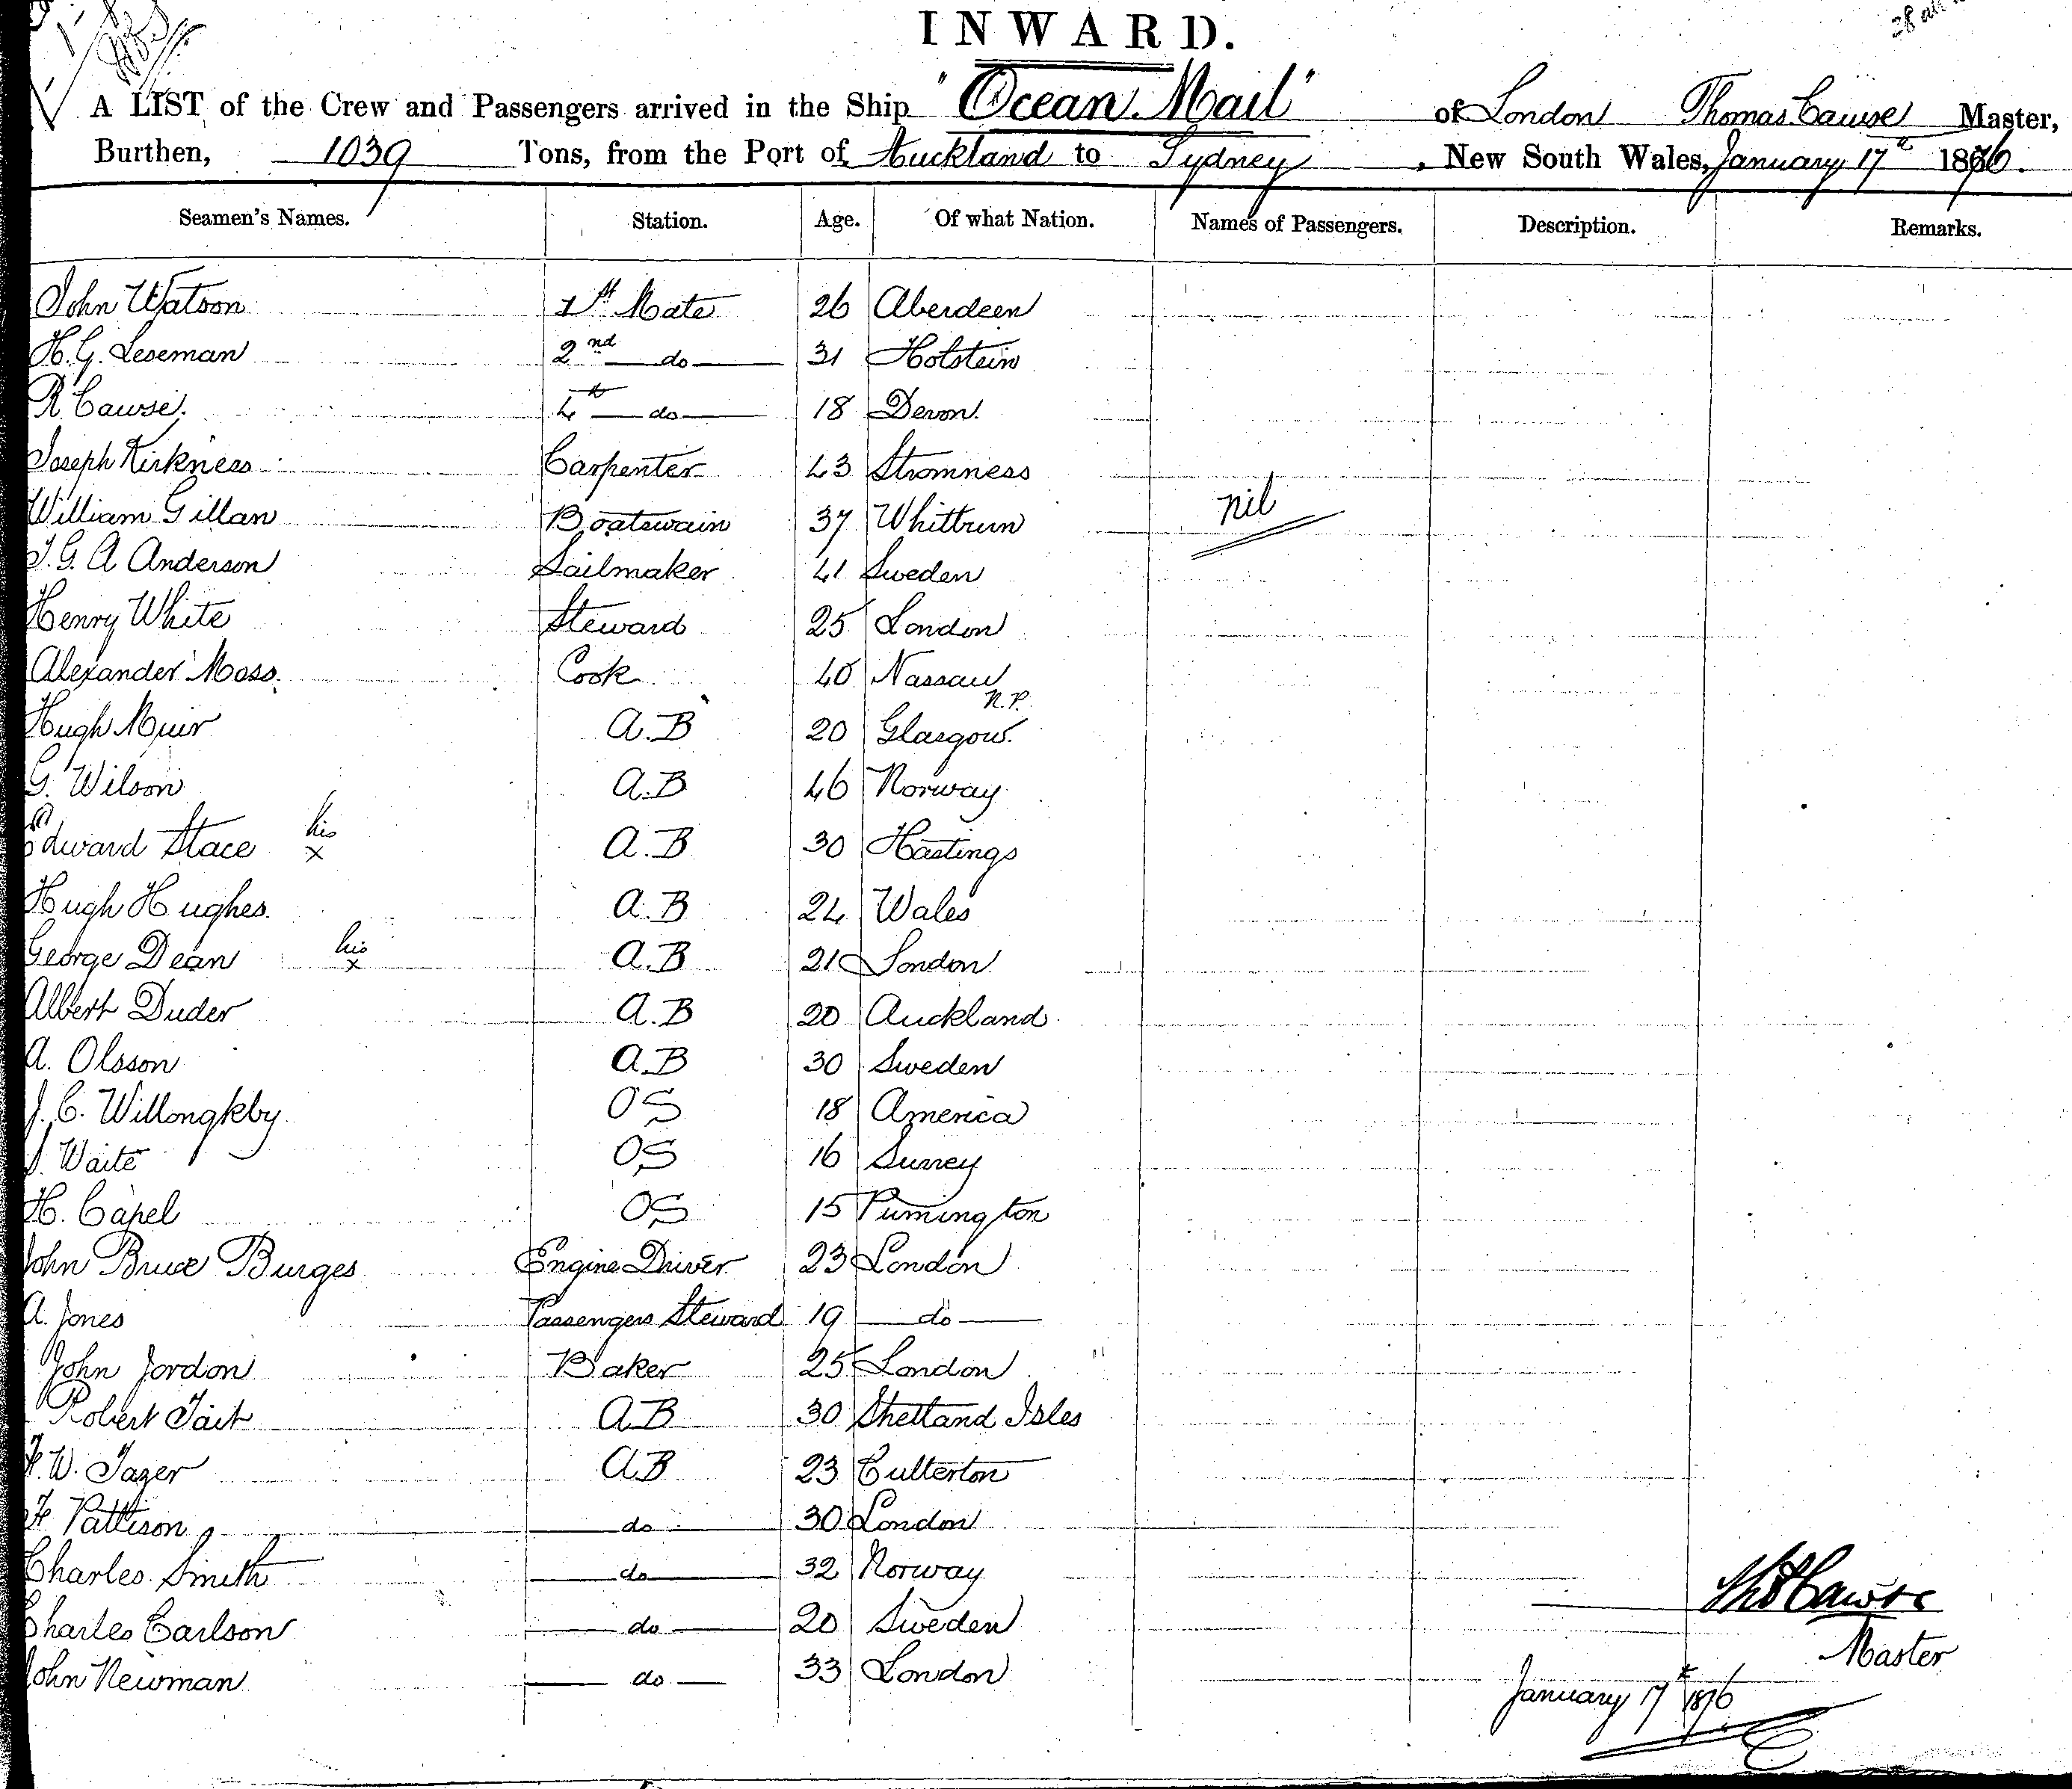 INWARD.
A LIST of the Crew and Passengers arrived in the Ship "Ocean Mail" of London Thomas Cawse Master,
Burthen, 1039 Tons, from the Port of Auckland to Sydney, New South Wales, January 17th 1876.
Seamen's Names. Station. Age. Of what Nation. Names of Passengers. Description. Remarks.
John Watson 1st Mate 26 Aberdeen
H. G. Leseman 2nd do 31 Holstein
R. Cawse. 4th do 18 Devon.
Joseph Kirkness Carpenter 43 Stromness
William Gillan Boatswain 37 Whitburn nil
J. G. A Anderson Sailmaker 41 Sweden
Henry White Steward 25 London
Alexander Moss. Cook 40 Nassau N.P.
Hugh Muir A.B 20 Glasgow.
G. Wilson A.B 46 Norway
Edward Stace his x A.B 30 Hastings
Hugh Hughes. A.B 24 Wales
George Dean his x A.B 21 London
Albert Duder A.B 20 Auckland
A. Olsson A.B 30 Sweden
J. C. Willongkby OS 18 America
J. Waite OS 16 Surrey
H. Capel OS 15 Pumington
John Bruce Burges Engine Driver 23 London
A. Jones Passengers Steward 19 do
John Jordon Baker 25 London
Robert Tait AB 30 Shetland Isles
F. W. Jazer AB 23 Cullerton
F. Pattison do 30 London
Charles Smith do 32 Norway
Charles Carlson do 20 Sweden
John Newman do 33 London
Thos Cawse
Master
January 17th 1876